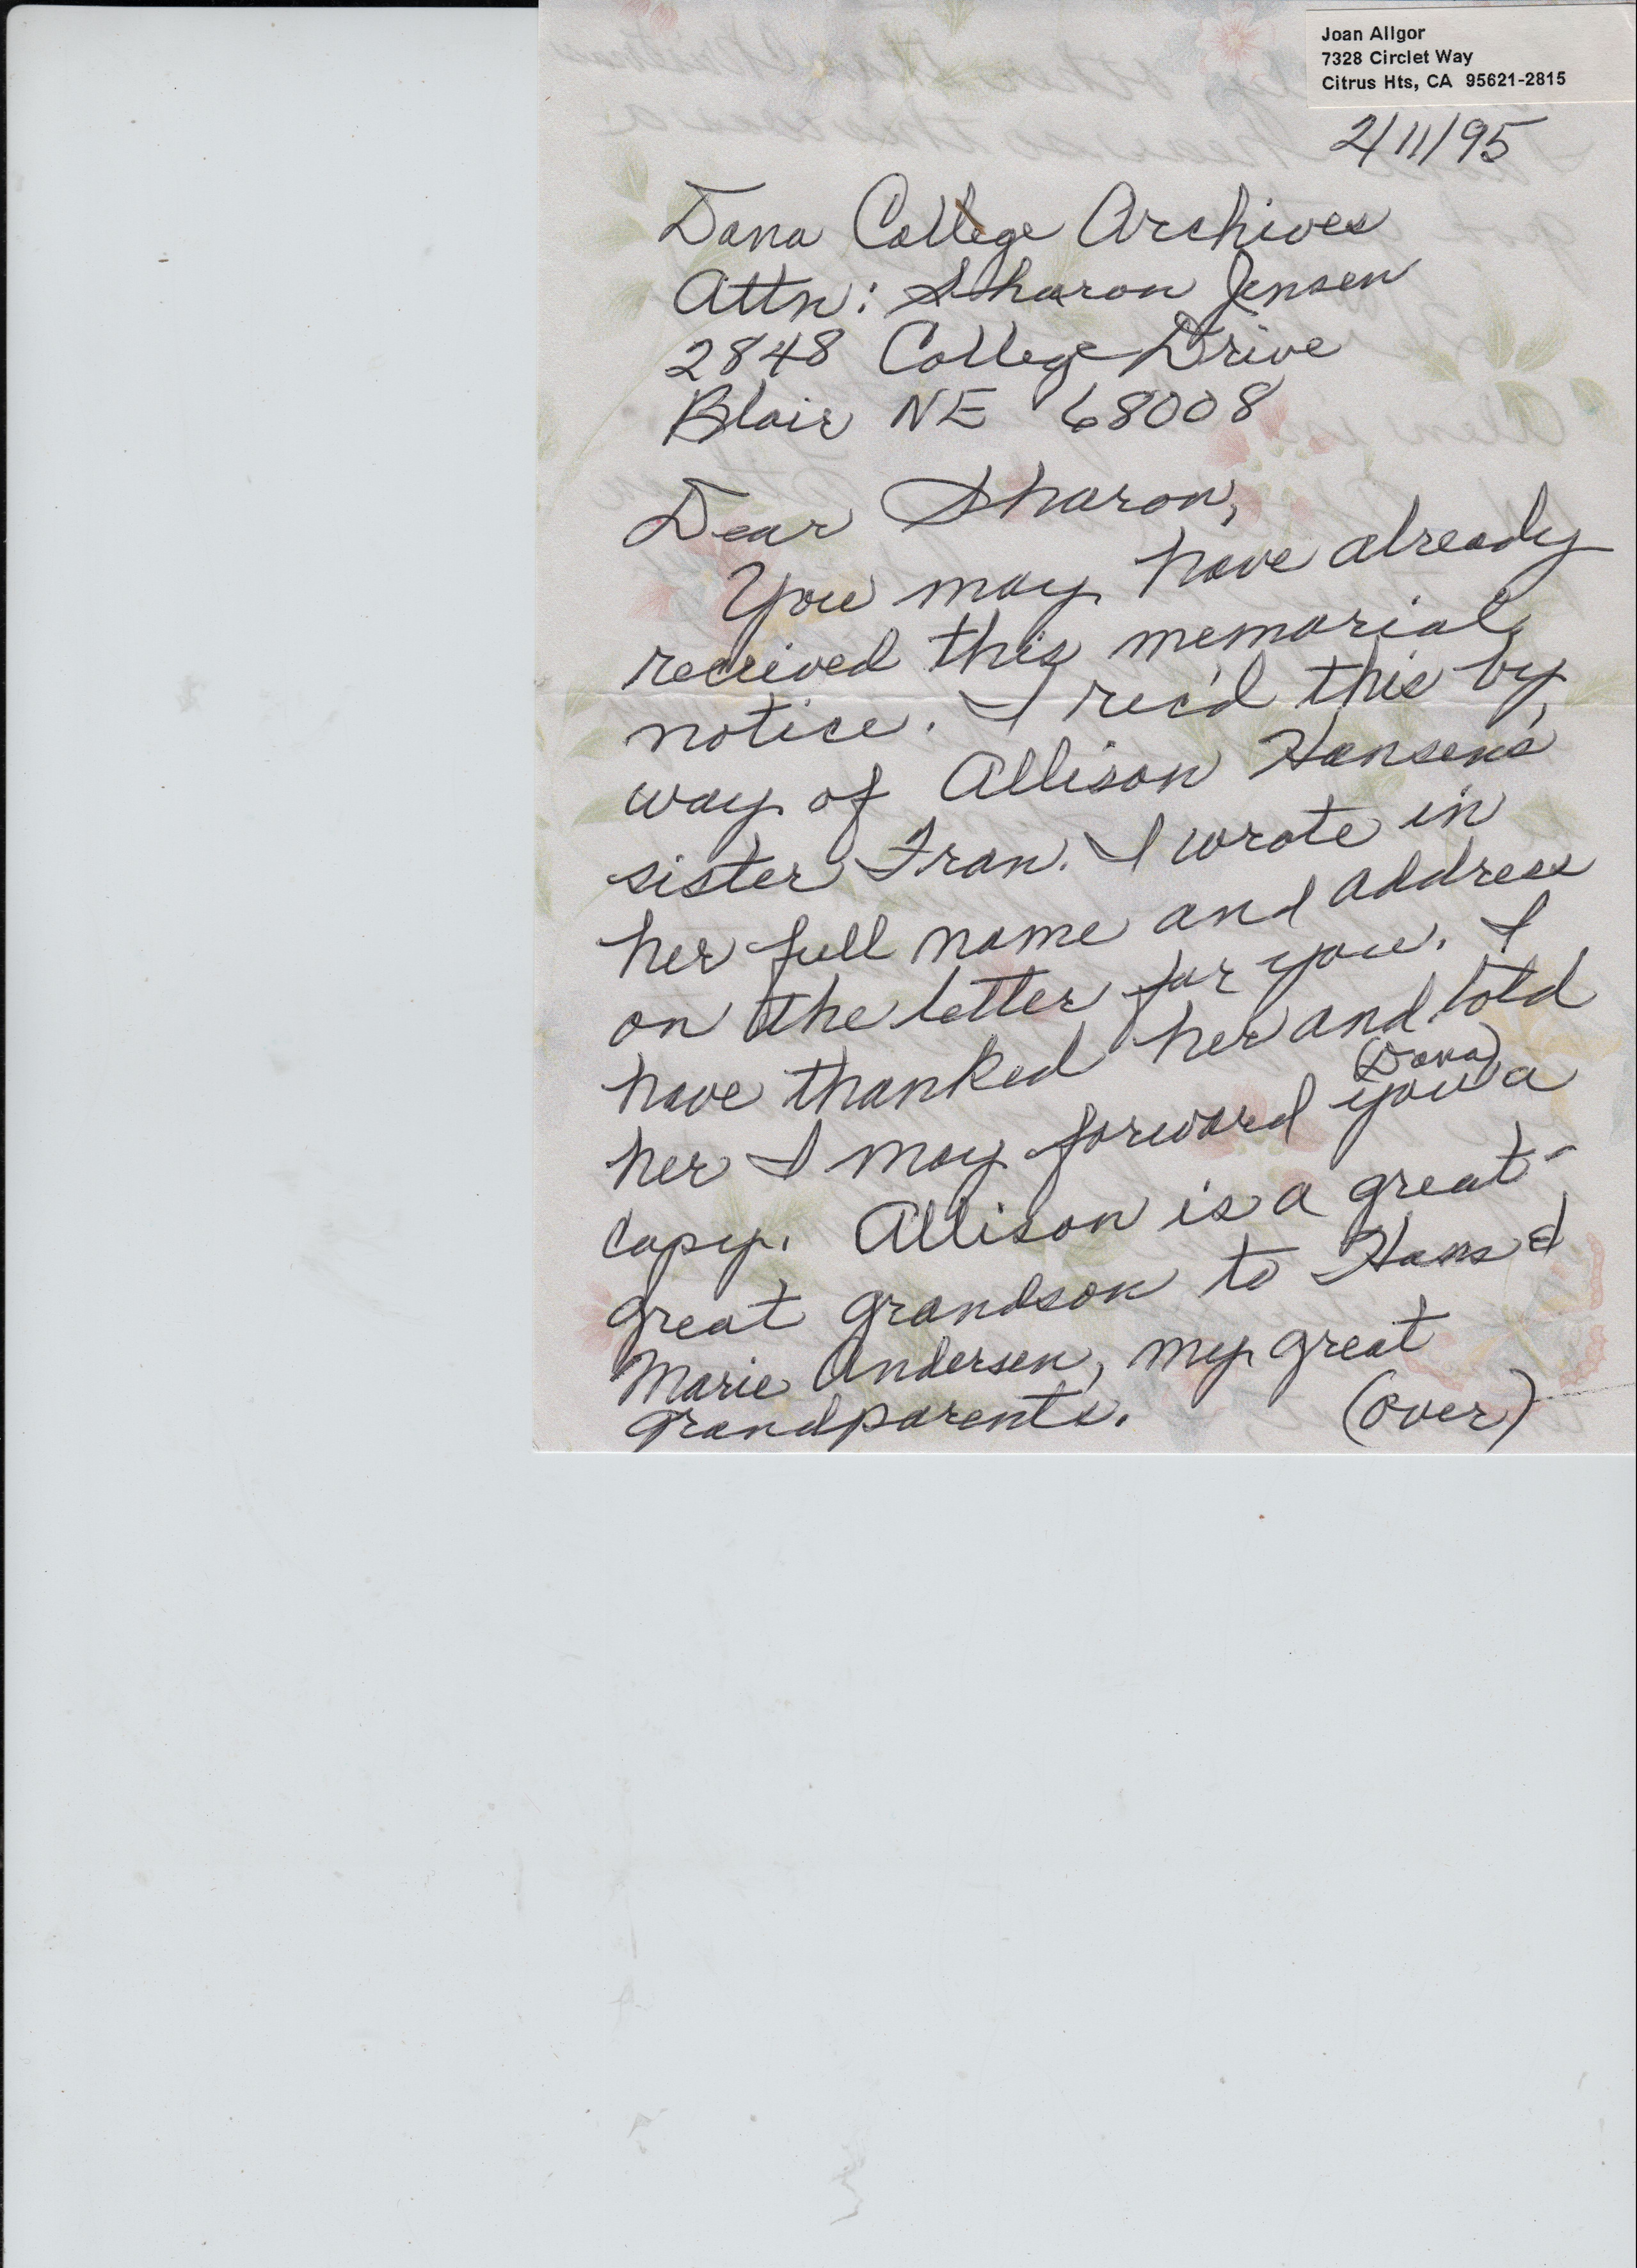 Joan Allgor
7328 Circlet Way
Citrus Hts, CA 95621-2815
2/11/95
Dana College Archives
Attn: Sharon Jensen
2848 College Drive
Blair NE 68008
Dear Sharon,
You may have already
received this memorial
notice. I rec'd this by
way of Allison Hansen's
sister Fran. I wrote in
her full name and address
on the letter for you. I
have thanked her and told
(Dana)
her I may forward you a
copy. Allison is a great-
great grandson to Hans &
Marie Andersen, my great
grandparents. (over)